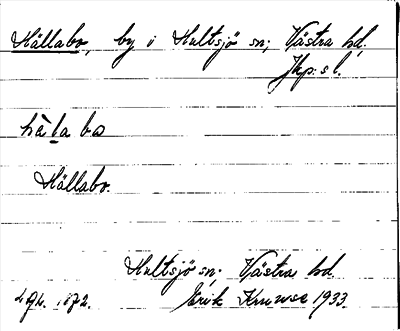 Hällabo, by i Hultsjö sn; Västra hd,
Jkp:s l.
hàla bo
Hällabo.
Hultsjö sn; Västra hd.
Erik Kruuse 1933.